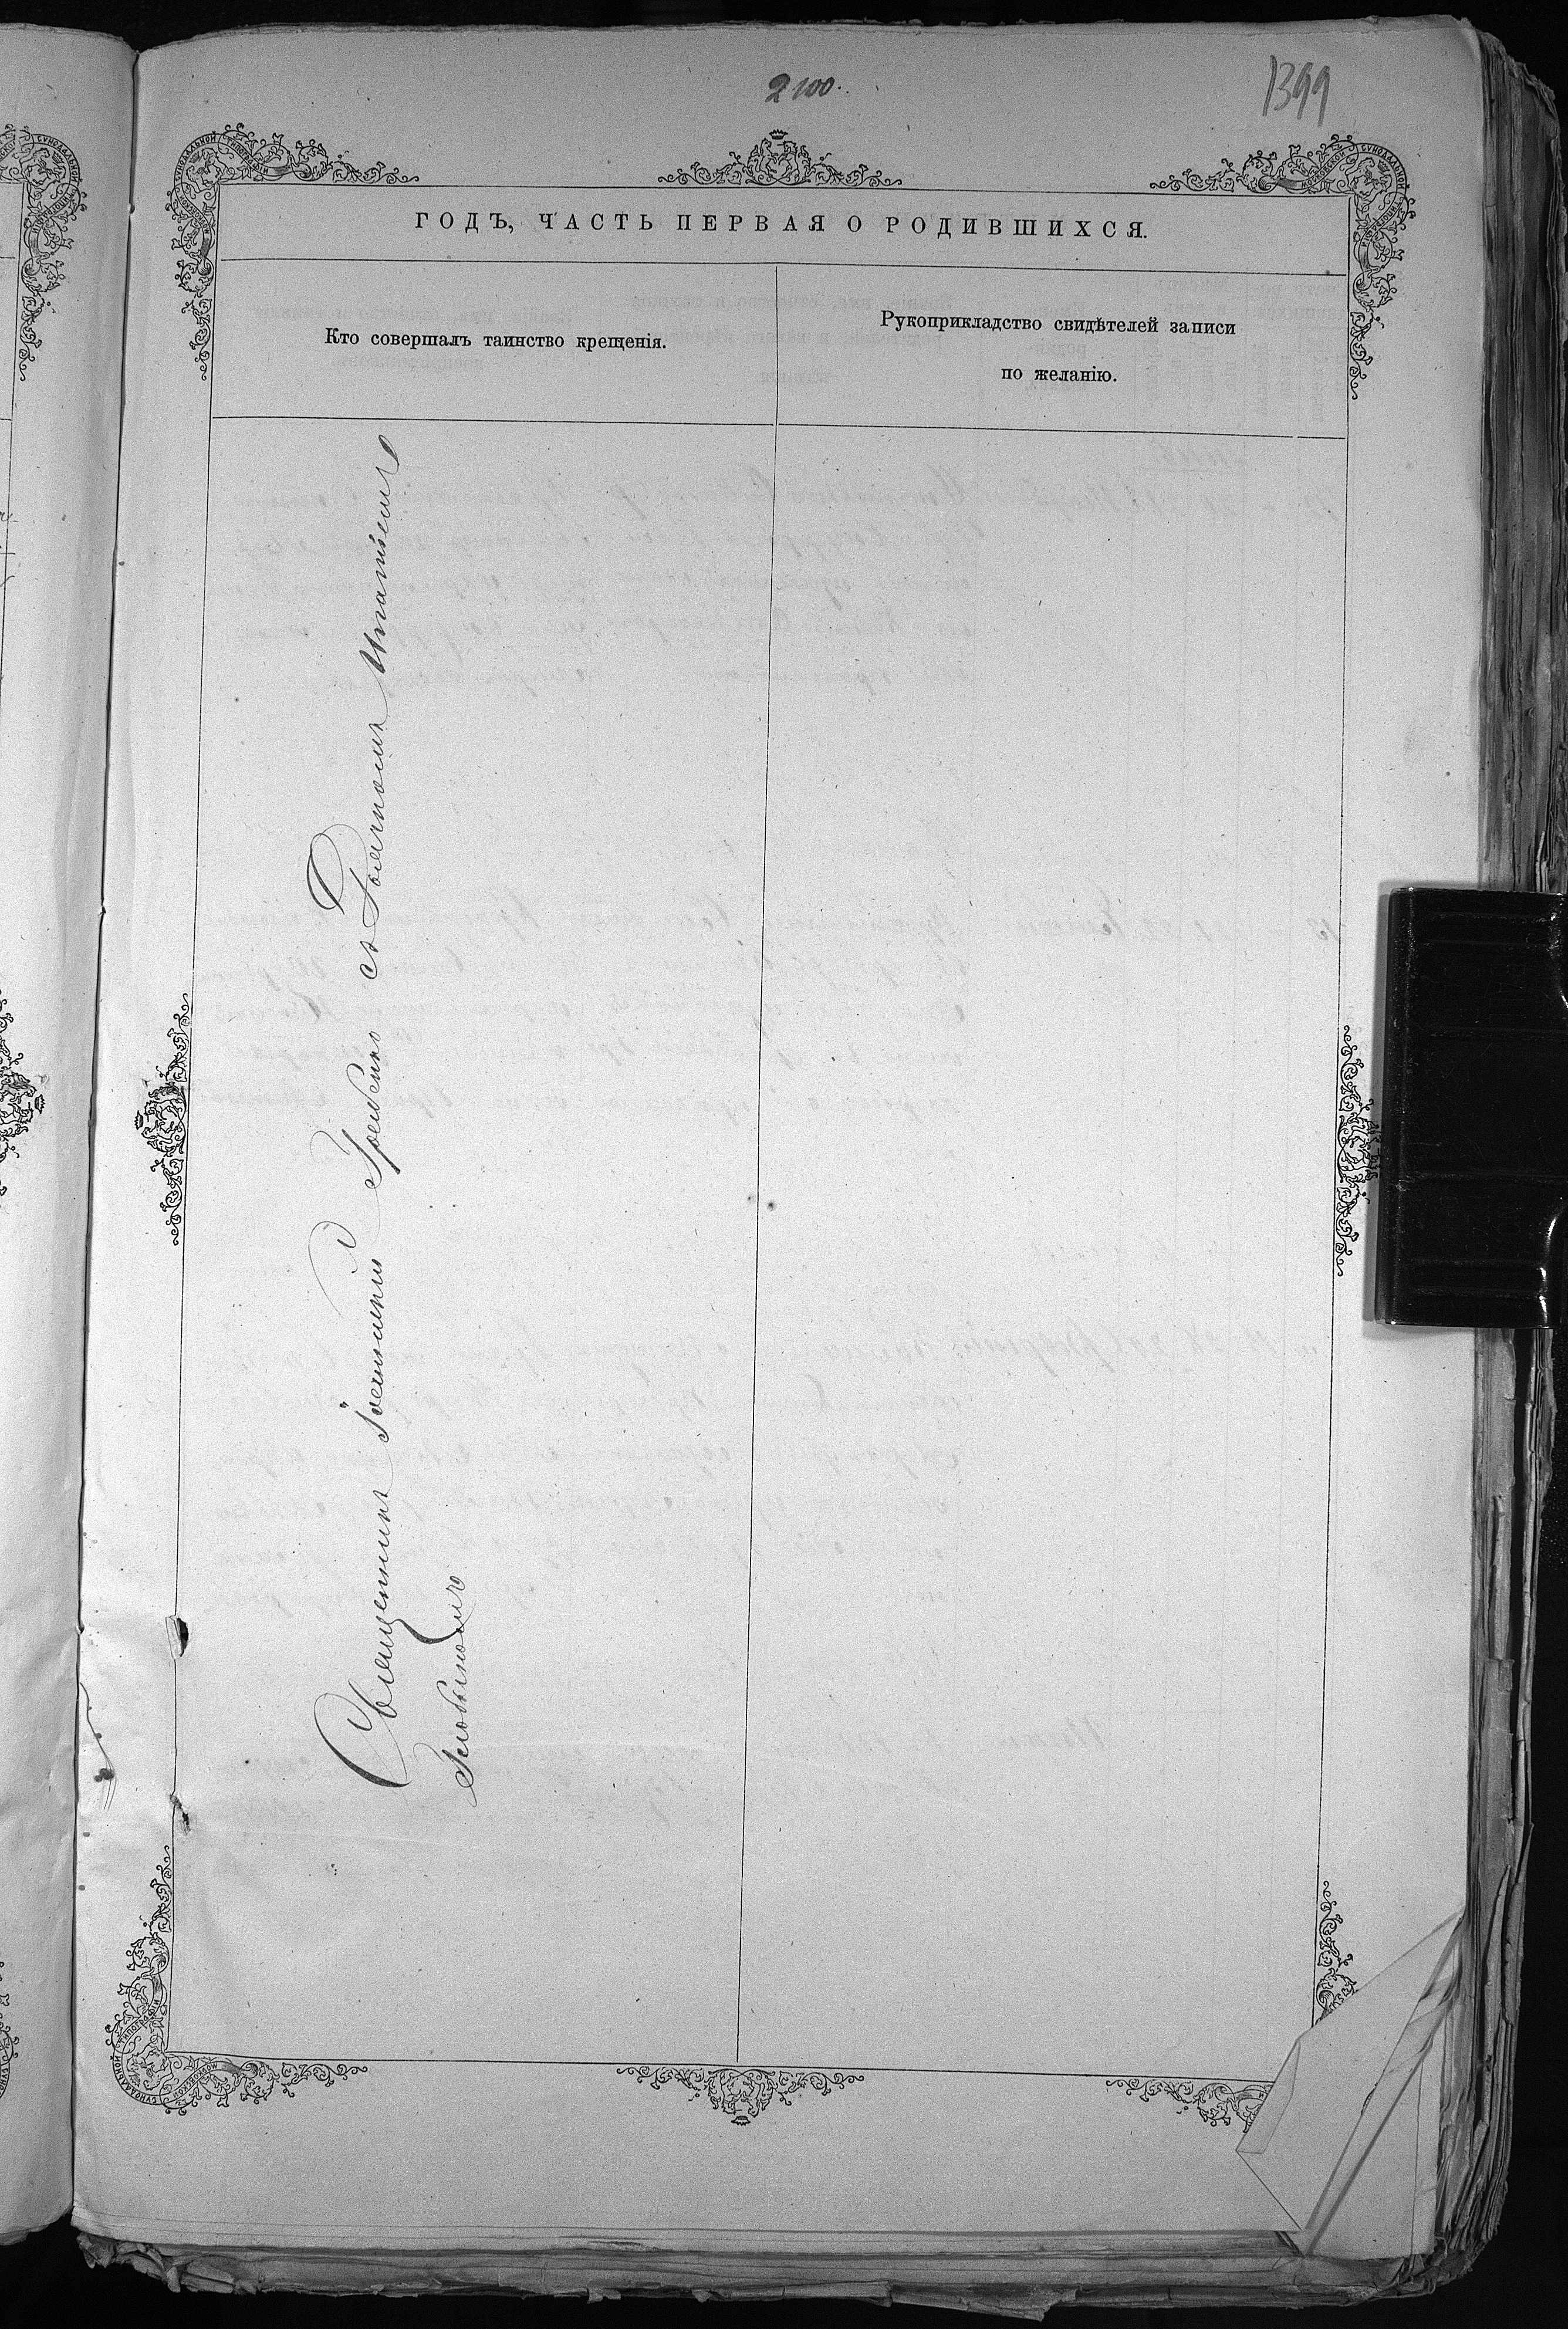 2100.
1399
ГОДЪ, ЧАСТЬ ПЕРВАЯ О РОДИВШИХСЯ.
Кто совершалъ таинство крещенія.
Рукоприкладство свидѣтелей записи
по желанію.
Священникъ Іоанникій съ Дьячкомъ Игнатіемъ